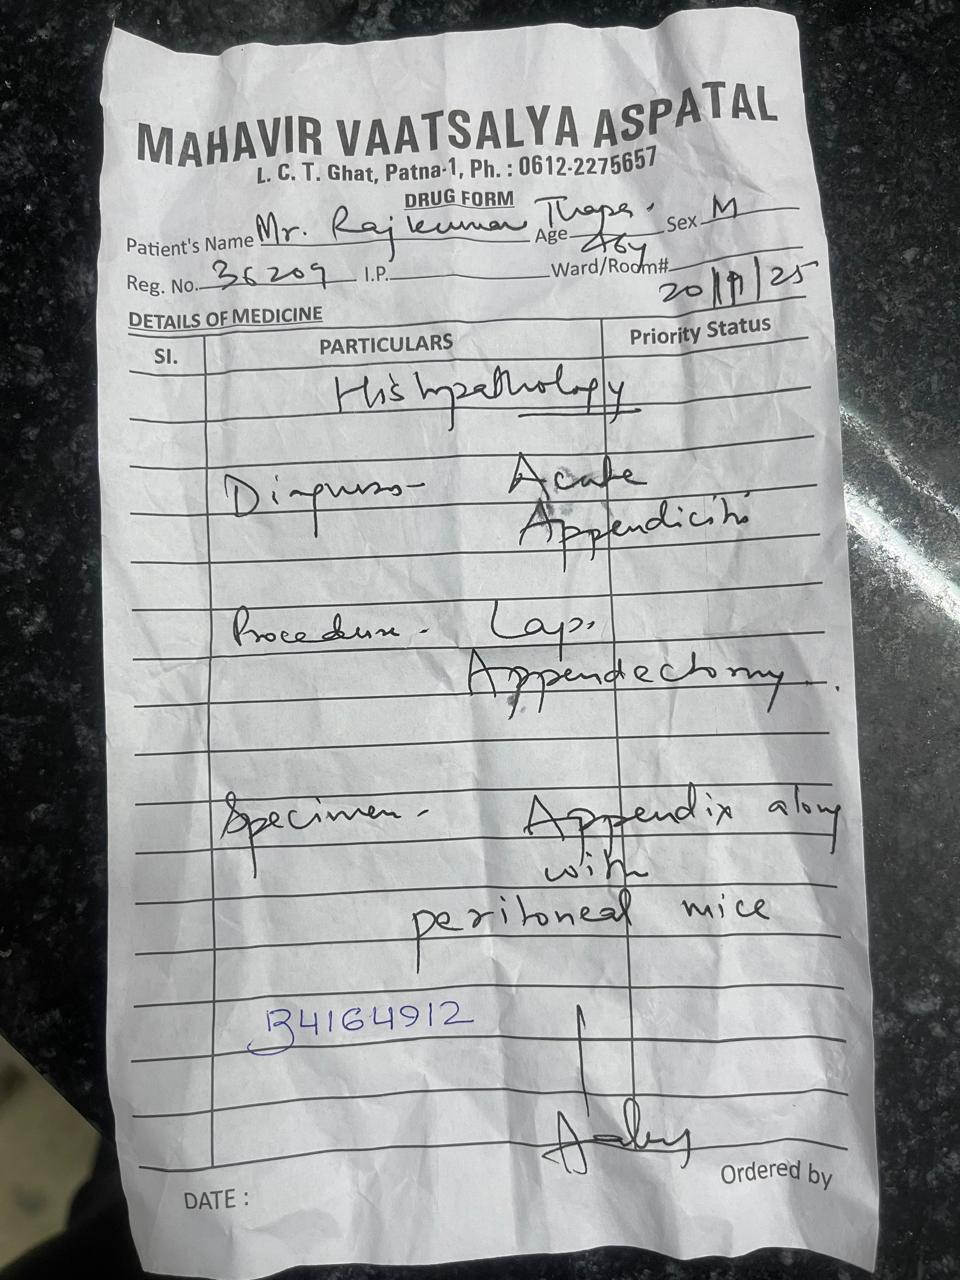 MAHAVIR VAATSALYA ASPATAL
L. C. T. Ghat, Patna-1, Ph. : 0612-2275657
DRUG FORM
Patient's Name Mr. Raj kumar Thapa. Age 46y Sex M
Reg. No. 36209 I.P. Ward/Room#
20/11/25
DETAILS OF MEDICINE
Sl. PARTICULARS Priority Status
Histopathology
Diagnosis- Acute
Appendicitis
Procedure- Lap.
Appendectomy.
Specimen- Appendix along
with
peritoneal mice
B4164912
DATE :
Ordered by